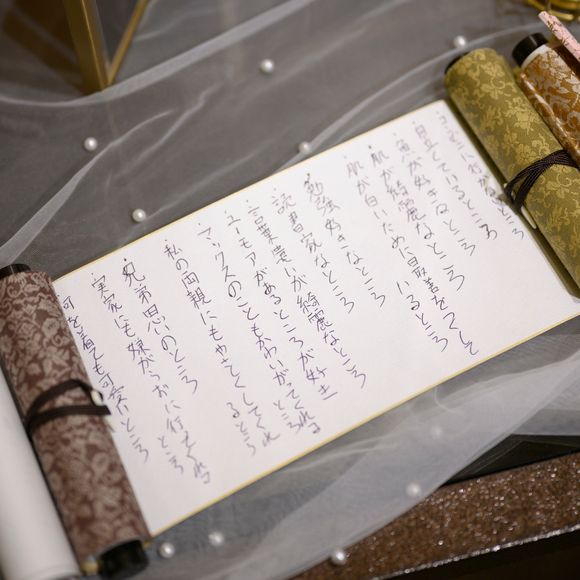 ・コンビニに行か ところ
・自立しているところ
・魚が好きなところ
・肌が綺麗なところ
・肌が白いために最善をつくして
いるところ
・勉強好きなところ
・読書家なところ
・言葉遣いが綺麗なところ
・ユーモアがあるところが好き
・マックスのこともかわいがってくれる
ところ
・私の両親にもやさしくしてくれ
るところ
・兄弟思いのところ
・実家にも嫌がらずに行ってくれる
ところ
・何を着ても可愛いところ